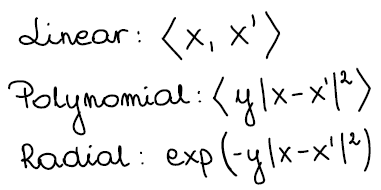 Linear: ⟨x, x'⟩
Polynomial: ⟨y|x-x'|²⟩
Radial: exp(-y|x-x'|²)